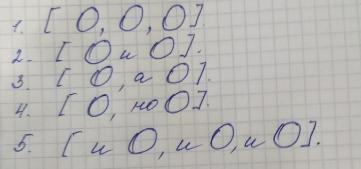 1. [ O, O, O].
2. [ O и O].
3. [ O, а O].
4. [ O, но O].
5. [ и O, и O, и O].